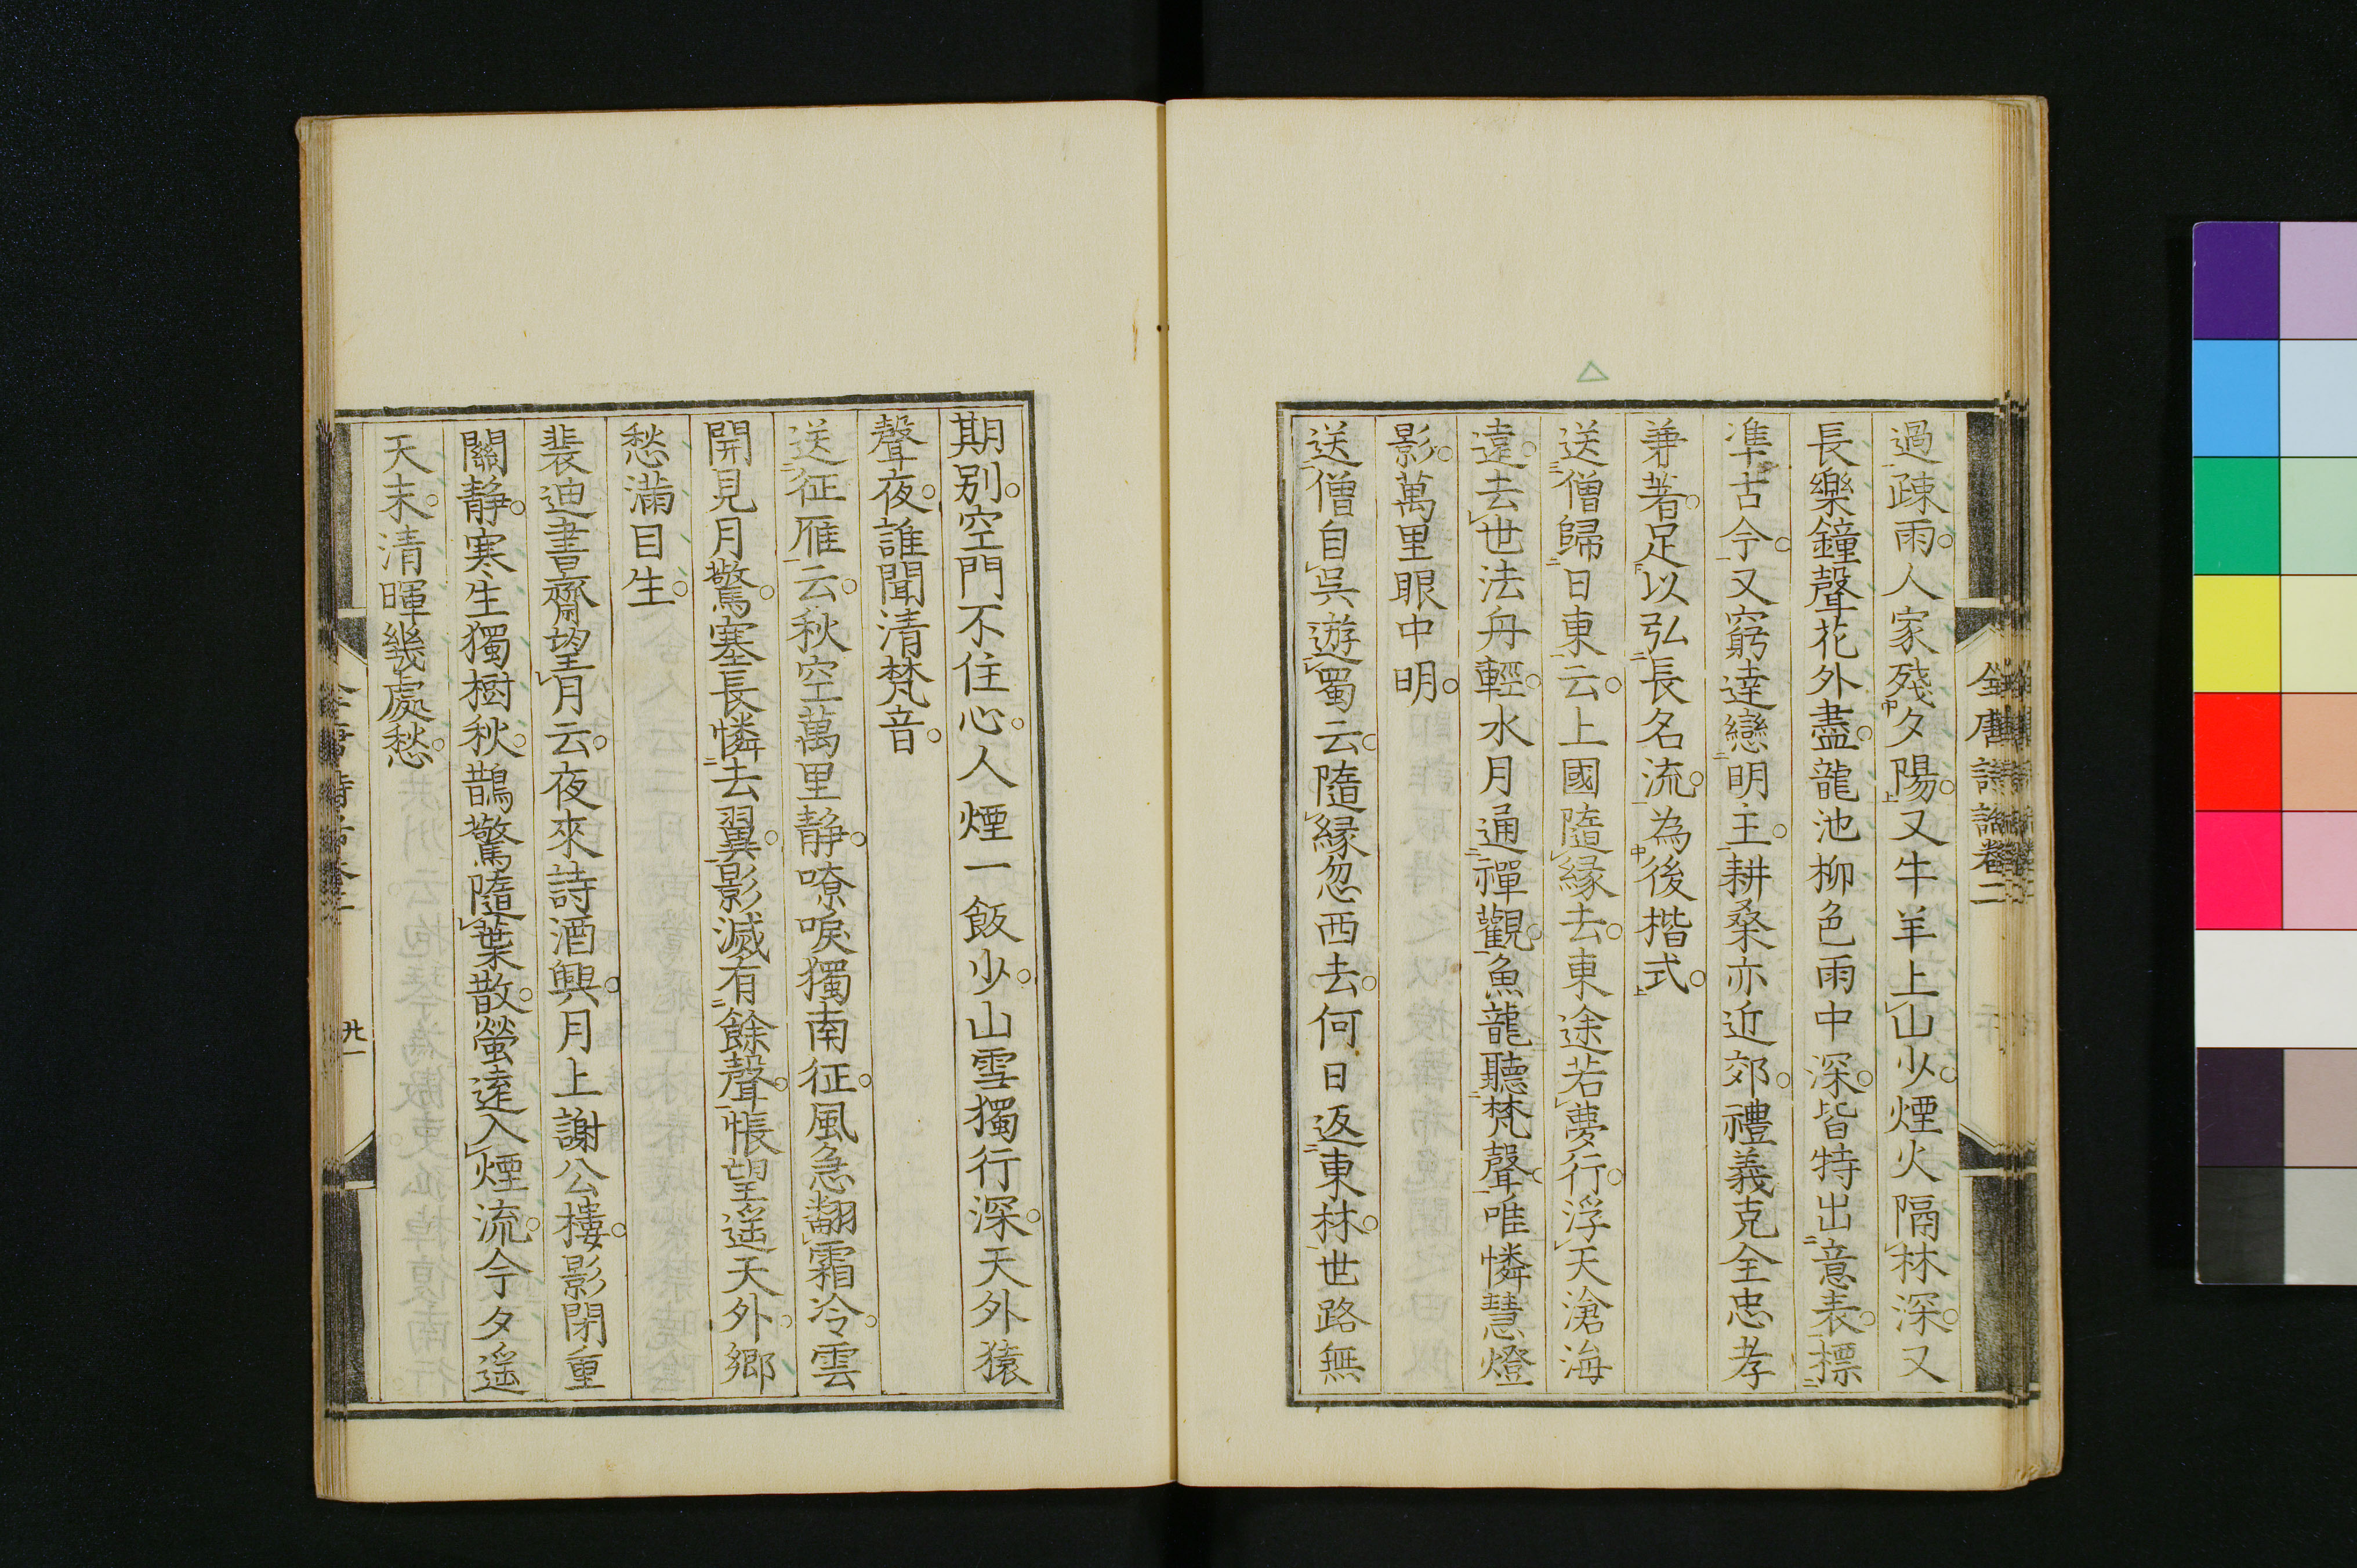 過疎雨。人家殘夕陽。又牛羊上山少。煙火隔林深。又
長樂鐘聲花外盡。龍池柳色雨中深。皆特出意表。標
凖古今。又窮達戀明主。耕桑亦近郊。禮義克全忠孝
兼著。足以弘長名流。為後楷式。
送僧歸日東云。上國隨緣去。東途若夢行。浮天滄海
遠。去世法舟輕。水月通禪觀。魚龍聽梵聲。唯憐慧燈
影。萬里眼中明。
送僧自吳遊蜀云。隨緣忽西去。何日返東林。世路無
全唐詩話卷二
期別。空門不住心。人煙一飯少。山雪獨行深。天外猿
聲夜。誰聞清梵音。
送征雁云。秋空萬里静。嘹唳獨南征。風急翻霜冷。雲
開見月驚。塞長憐去翼。影滅有餘聲。悵望遥天外。鄉
愁滿目生。
裴迪書齋望月云。夜來詩酒興。月上謝公樓。影閉重
關静。寒生獨樹秋。鵲驚隨葉散。螢遠入煙流。今夕遥
天末。清暉幾處愁。
廿一